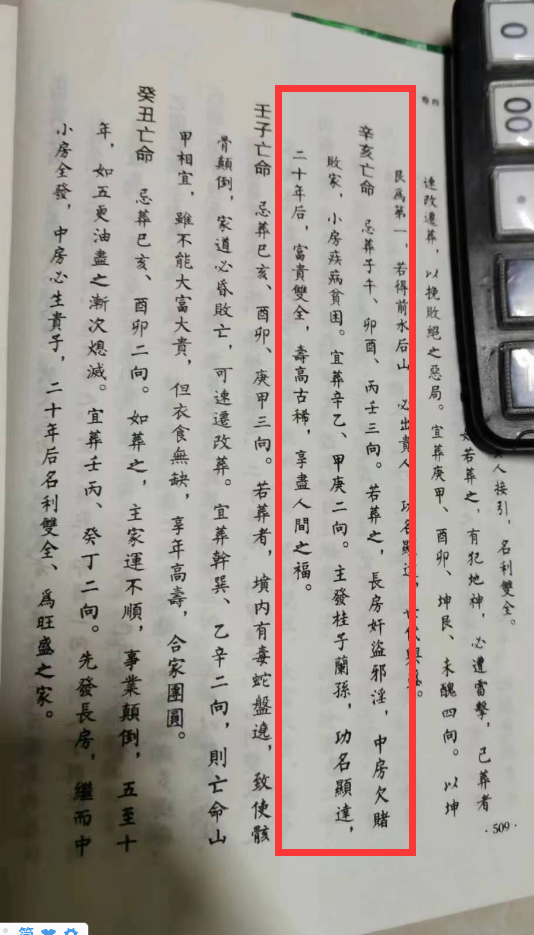 卷四
人接引，名利雙全。
如若葬之，有犯地神，必遭雷擊，已葬者
速改遷葬，以挽敗絕之惡局。宜葬庚甲、酉卯、坤艮、未醜四向。以坤
艮為第一，若得前水后山，必出貴人，功名顯達，
辛亥亡命　忌葬子午、卯酉、丙壬三向。若葬之，長房奸盜邪淫，中房欠賭
敗家，小房疾病貧困。宜葬辛乙、甲庚二向。主發桂子蘭孫，功名顯達，
二十年后，富貴雙全，壽高古稀，享盡人間之福。
壬子亡命　忌葬巳亥、酉卯、庚甲三向。若葬者，墳内有毒蛇盤遶，致使骸
骨顛倒，家道必昏敗亡，可速遷改葬。宜葬幹巽、乙辛二向，則亡命山
甲相宜，雖不能大富大貴，但衣食無缺，享年高壽，合家團圓。
癸丑亡命　忌葬巳亥、酉卯二向。如葬之，主家運不順，事業顛倒，五至十
年，如五更油盡之漸次熄滅。宜葬壬丙、癸丁二向。先發長房，繼而中
小房全發，中房必生貴子，二十年后名利雙全、爲旺盛之家。
·509·
0
00
简